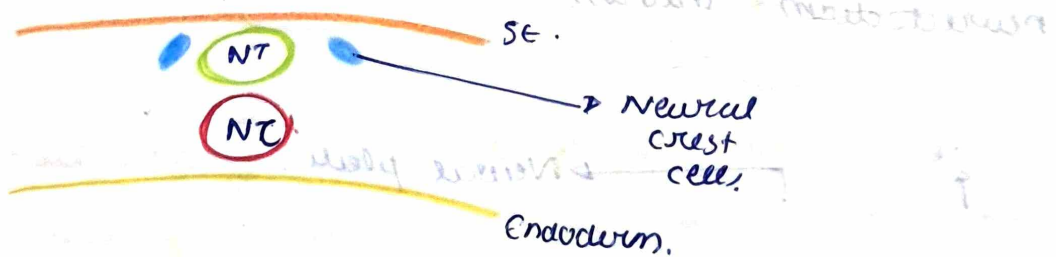 SE.
NT
Neural
crest
cells.
NC
Endoderm.